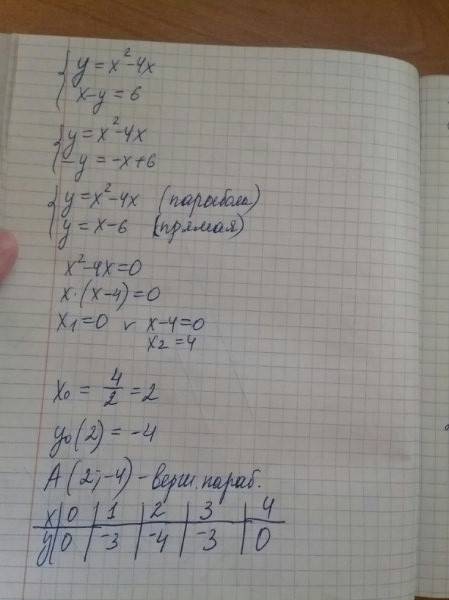 y = x²-4x
x-y = 6
y = x²-4x
-y = -x+6
y = x²-4x (парабола)
y = x-6 (прямая)
x²-4x=0
x·(x-4)=0
x₁=0 v x-4=0
x₂=4
x₀ = 4/2 = 2
y₀(2) = -4
A(2;-4) - верш. параб.
x 0 1 2 3 4
y 0 -3 -4 -3 0